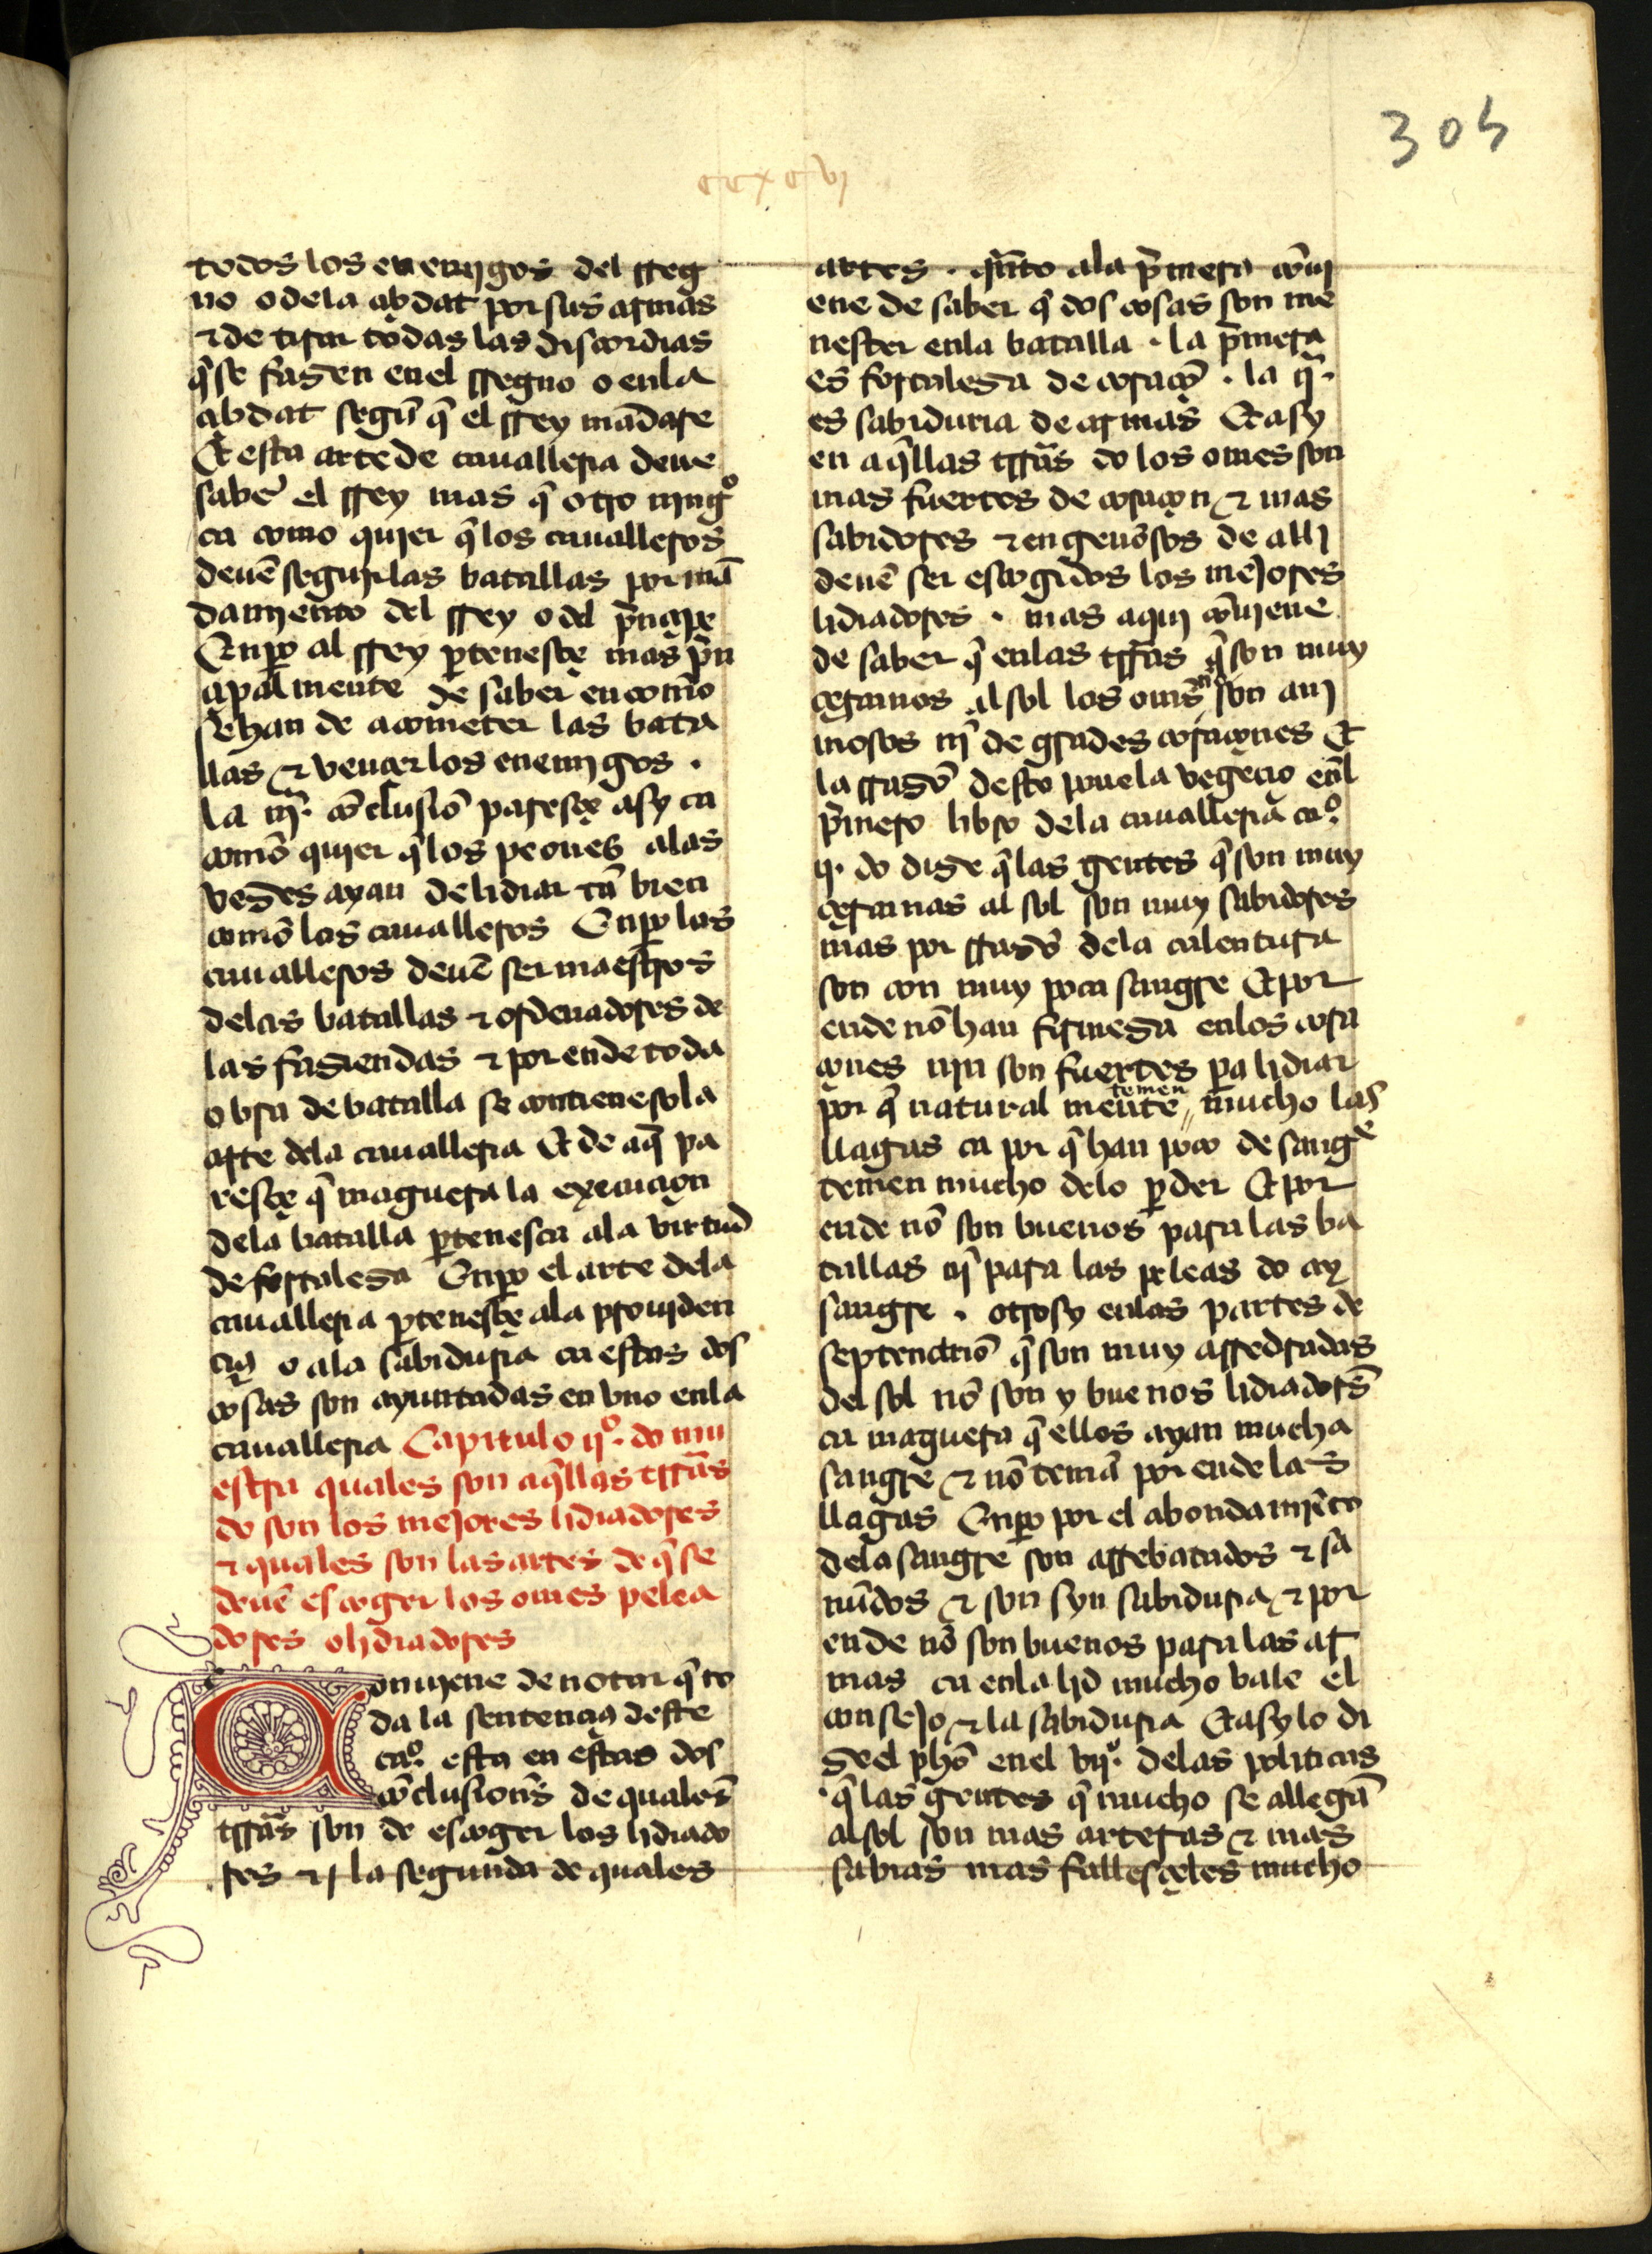 305
ccxcvj
todos los enemjgos del rreg
no o dela çibdat por sus armas
⁊ de tirar todas las discordias
q̃ se fazen enel rregno o enla
çibdat segũ q̃ el rrey mãdare
Et esta arte de cauallería deue
saber el rrey mas q̃ otro njngº
ca como quier q̃ los caualleros
deuẽ segujr las batallas por mã
damjento del rrey o del prĩçipe
Enpo al rrey ꝑtenesçe mas prĩ
çipal mente de saber en commo
se han de acometer las bata
llas ⁊ vençer los enemjgos .
la iijª. cõclusiõ paresçe asy ca
commo quier q̃ los peones a las
vezes ayan de lidiar tã bien
commo los caualleros Enpo los
caualleros deuẽ ser maestros
delas batallas ⁊ ordenadores de
las faziendas ⁊ por ende toda
obra de batalla se contiene so la
arte dela cauallería Et de aq̃ pa
resçe q̃ maguera la execuçion
dela batalla ꝑtenesca ala virtud
de fortaleza Enpo el arte dela
cauallería ꝑtenesçe ala prouiden
çia o ala sabiduria ca estas dos
cosas son ayuntadas en vno enla
cauallería Capitulo ijº. do mu
estra quales son aq̃llas trrãs
do son los mejores lidiadores
⁊ quales son las artes de q̃ se
deuẽ escoger los omes pelea
dores o lidiadores
Conujene de notar q̃ to
da la sentençia deste
caº. esta en estas dos
cõclusionẽs de qualeš
trrãs son de escoger los lidiado
res ⁊ la segunda de quales
artes . quãto ala prĩmera cõuj
ene de saber q̃ dos cosas son me
nester enla batalla . la prĩmera
es fortaleza de coraçõ . la ijª.
es sabiduria de armas Et asy
en aq̃llas trrãs do los omes son
mas fuertes de coraçon ⁊ mas
sabidores ⁊ engeñosos de allj
deuẽ ser escogidos los mejores
lidiadores . mas aquj cõujene
de saber q̃ enlas trrãs q̃ son muy
çercanos al sol los omẽs nõ son anj
mosos nj̃ de grãdes coraçones Et
la rrazõ desto prueua vegeçio enl
prĩmero libro dela cauallería caº.
ij. do dize q̃ las gentes q̃ son muy
çercanas al sol son muy sabidores
mas por rrazõ dela calentura
son con muy poca sangre Et por
ende nõ han firmeza enlos cora
çones njn son fuertes ꝑa lidiar
por q̃ natural mente temen mucho las
llagas ca por q̃ han poco de sangre
temen mucho delo ꝑder Et por
ende nõ son buenos para las ba
tallas nj̃ para las peleas do ay
sangre . otrosy enlas partes de
septentriõ q̃ son muy arredradas
del sol nõ son y buenos lidiadorẽs
ca maguera q̃ ellos ayan mucha
sangre ⁊ nõ temã por ende las
llagas Enpo por el abondamjẽto
dela sangre son arrebatados ⁊ sa
ñudos ⁊ son syn sabiduria ⁊ por
ende nõ son buenos para las ar
mas ca enla lid mucho vale el
consejo ⁊ la sabiduria Et asy lo di
ze el phõ enel vijº. delas politicas
q̃ las gentes q̃ mucho se allegã
al sol son mas arteras ⁊ mas
sabias mas fallesçeles mucho